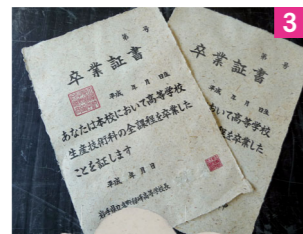 3
第 号
卒業証書
平成 年 月 日生
あなたは本校において高等学校
生産技術科の全課程を卒業した
ことを証します
平成 年 月 日
岩手県
高等学校長
第 号
卒業証書
平成 年 月 日生
高等学校
を卒業した